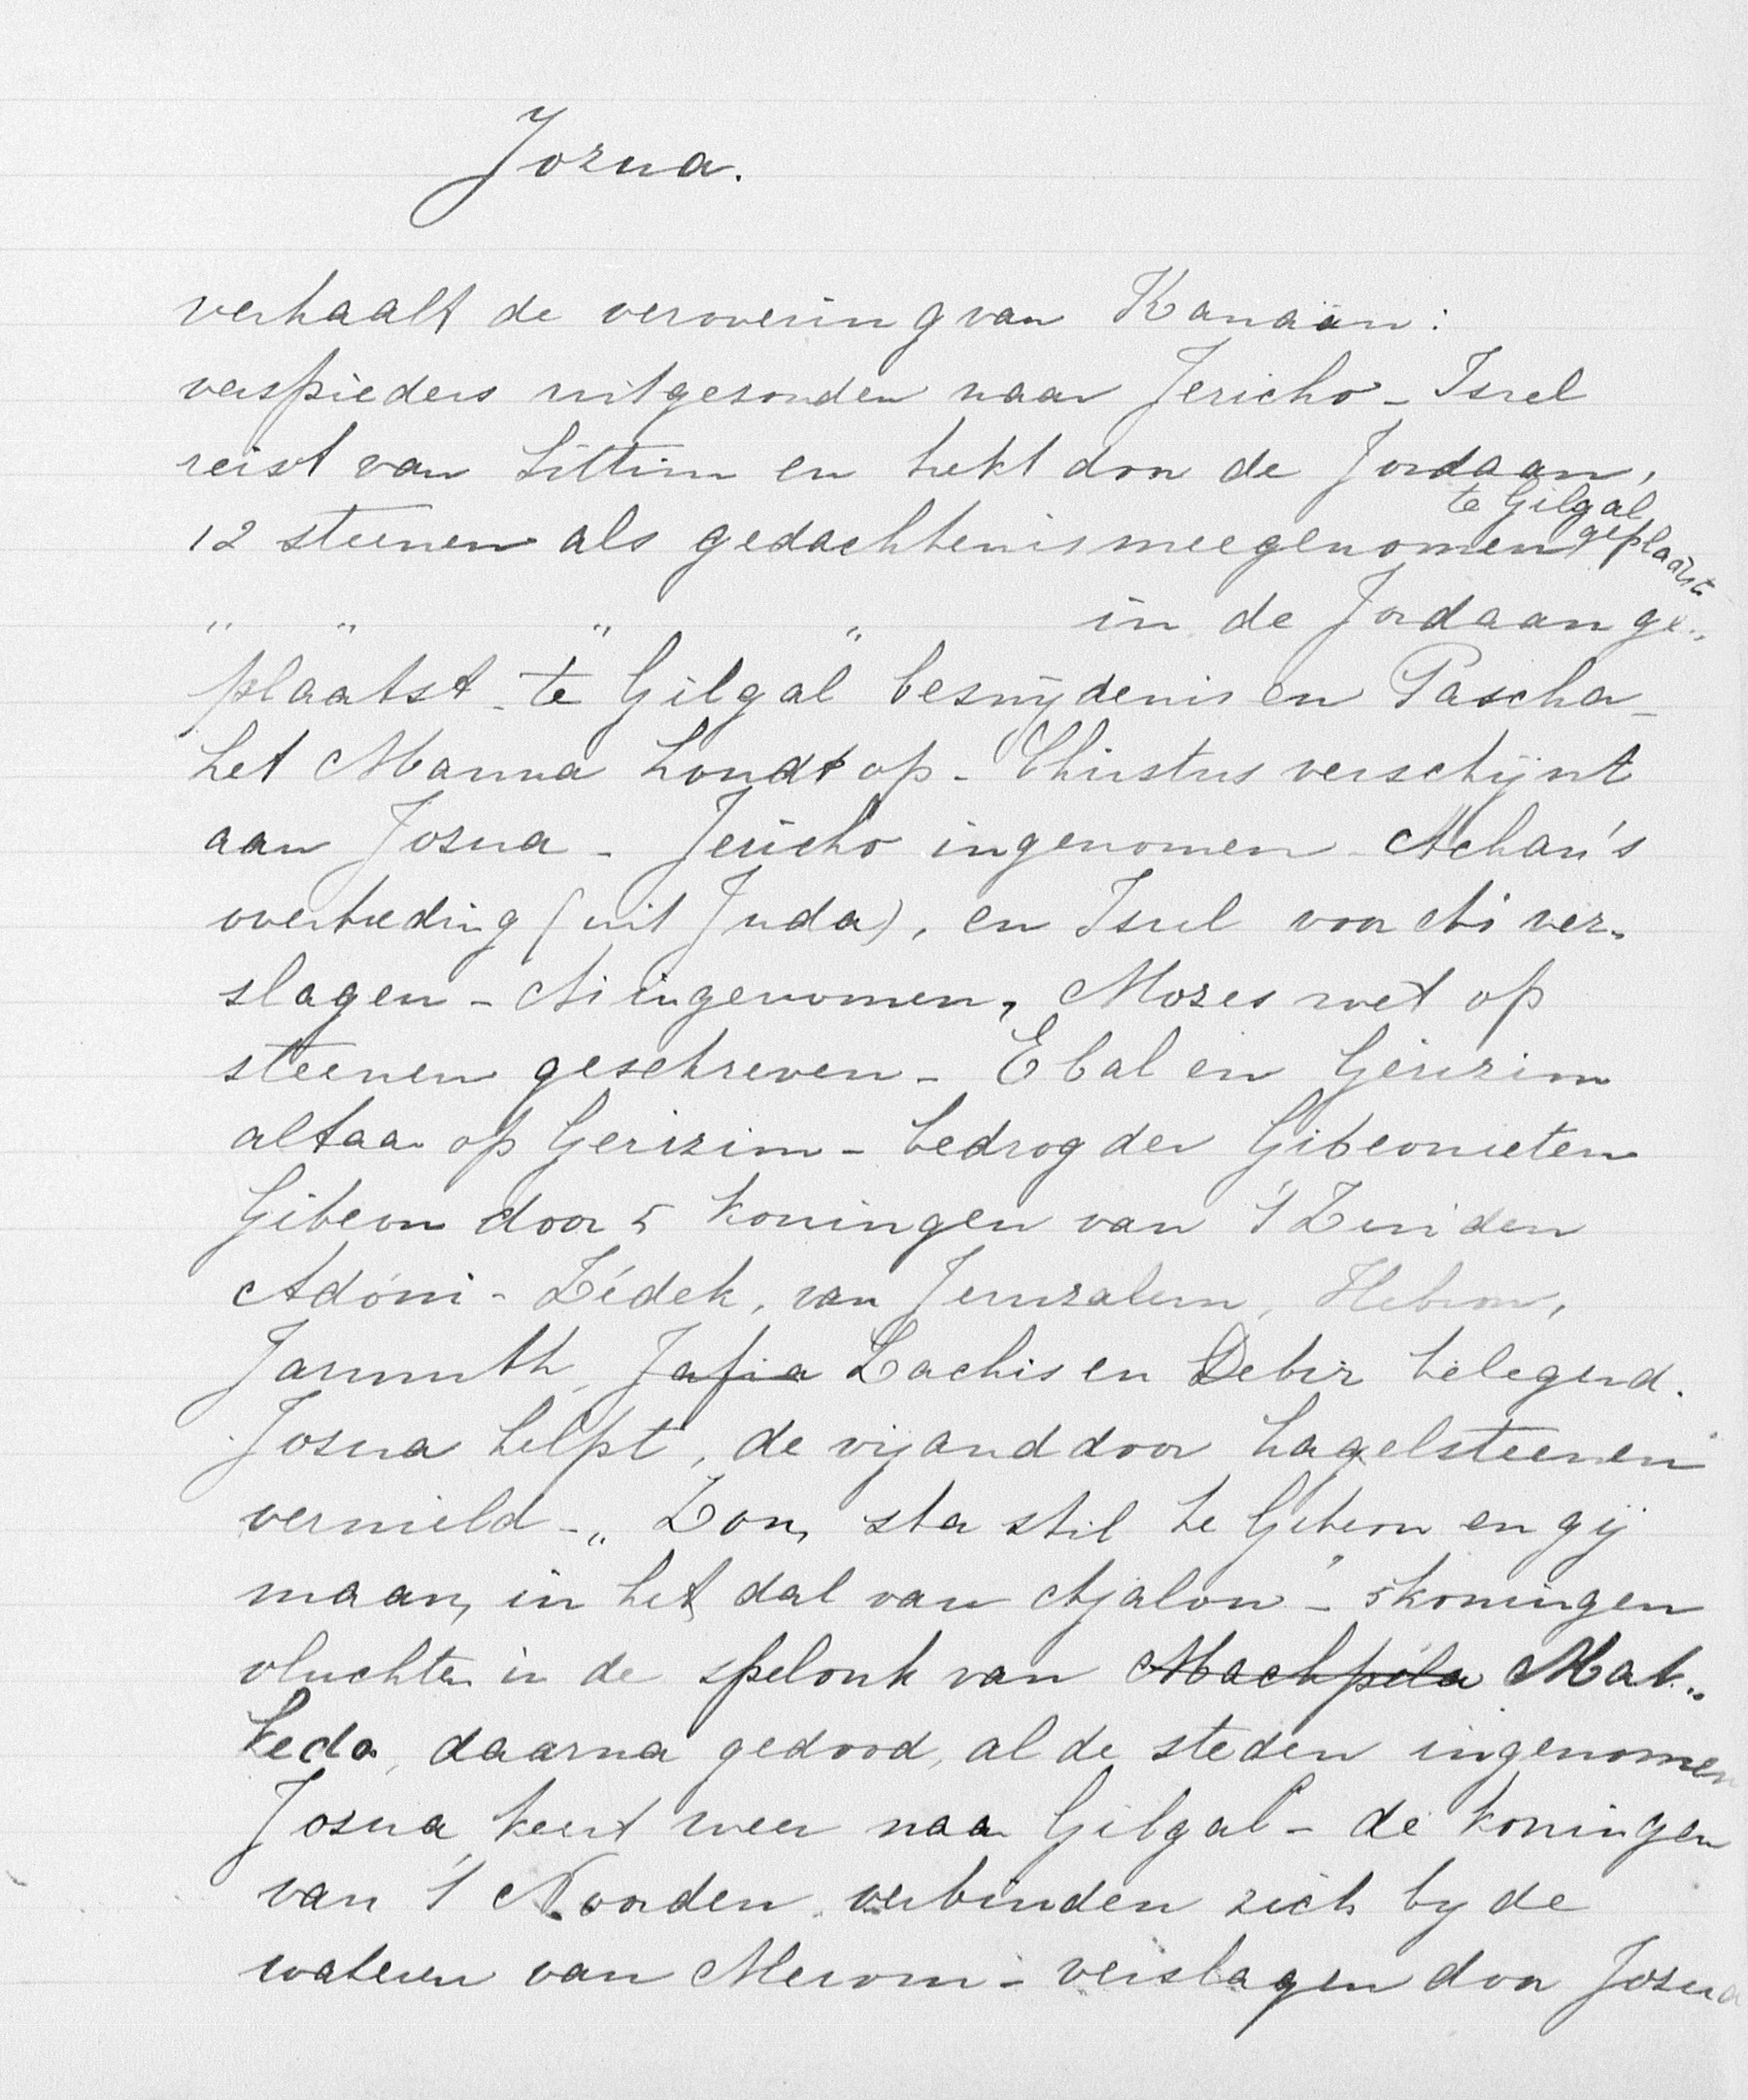 Jozua.
verhaalt de verovering van Kanaän:
verspieders uitgezonden naar Jericho - Isrel
reist van Sittim en trekt door de Jordaan,
te Gilgal
12 steenen als gedachtenis meegenomen geplaatst
" " " " in de Jordaan ge„
plaatst - te Gilgal besnijdenis en Pascha -
het Manna houdt op - Christus verschijnt
aan Jozua - Jericho ingenomen - Achan's
overtreding (uit Juda), en Isrel voor Ai ver„
slagen - Ai ingenomen, Mozes wet op
steenen geschreven - Ebal en Gerizim
altaar op Gerizim - bedrog der Gibeonieten
Gibeon door 5 koningen van 't Zuiden
Adóni-Zédek, van Jeruzalem, Hebron,
Jarmuth, Jafia Lachis en Debir belegerd.
Josua helpt, de vijand door hagelsteenen
vernield - „Zon, sta stil te Gibeon en gij
maan, in het dal van Ajalon" - 5 koningen
vluchten in de spelonk van Machpéla Mak„
keda, daarna gedood, al de steden ingenomen
Josua keert weer naar Gilgal - de koningen
van 't Noorden verbinden zich by de
wateren van Merom - verslagen door Josua